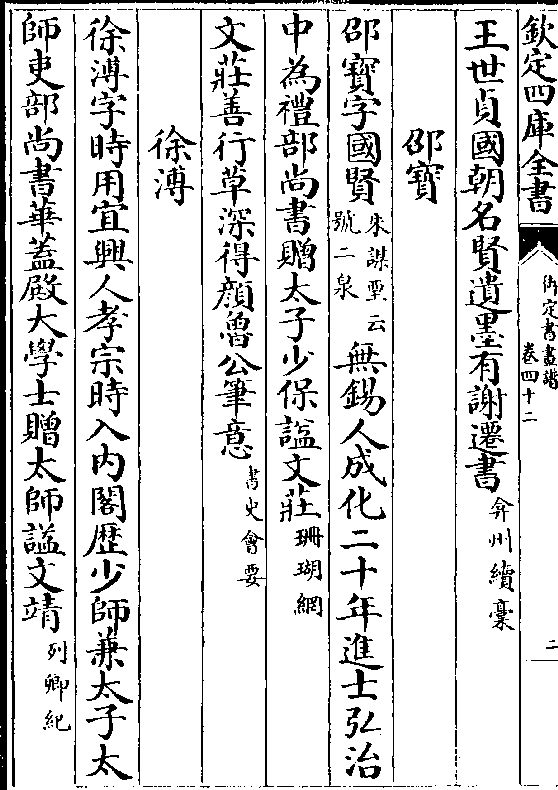 欽定四庫全書
御定書畫譜
卷四十二
二
王世貞國朝名賢遺墨有謝遷書弇州續稾
邵寶
邵寶字國賢朱謀垔云號二泉無錫人成化二十年進士弘治
中為禮部尚書贈太子少保諡文莊珊瑚網
文莊善行草深得顔魯公筆意書史會要
徐溥
徐溥字時用宜興人孝宗時入内閣歴少師兼太子太
師吏部尚書華蓋殿大學士贈太師諡文靖列卿紀